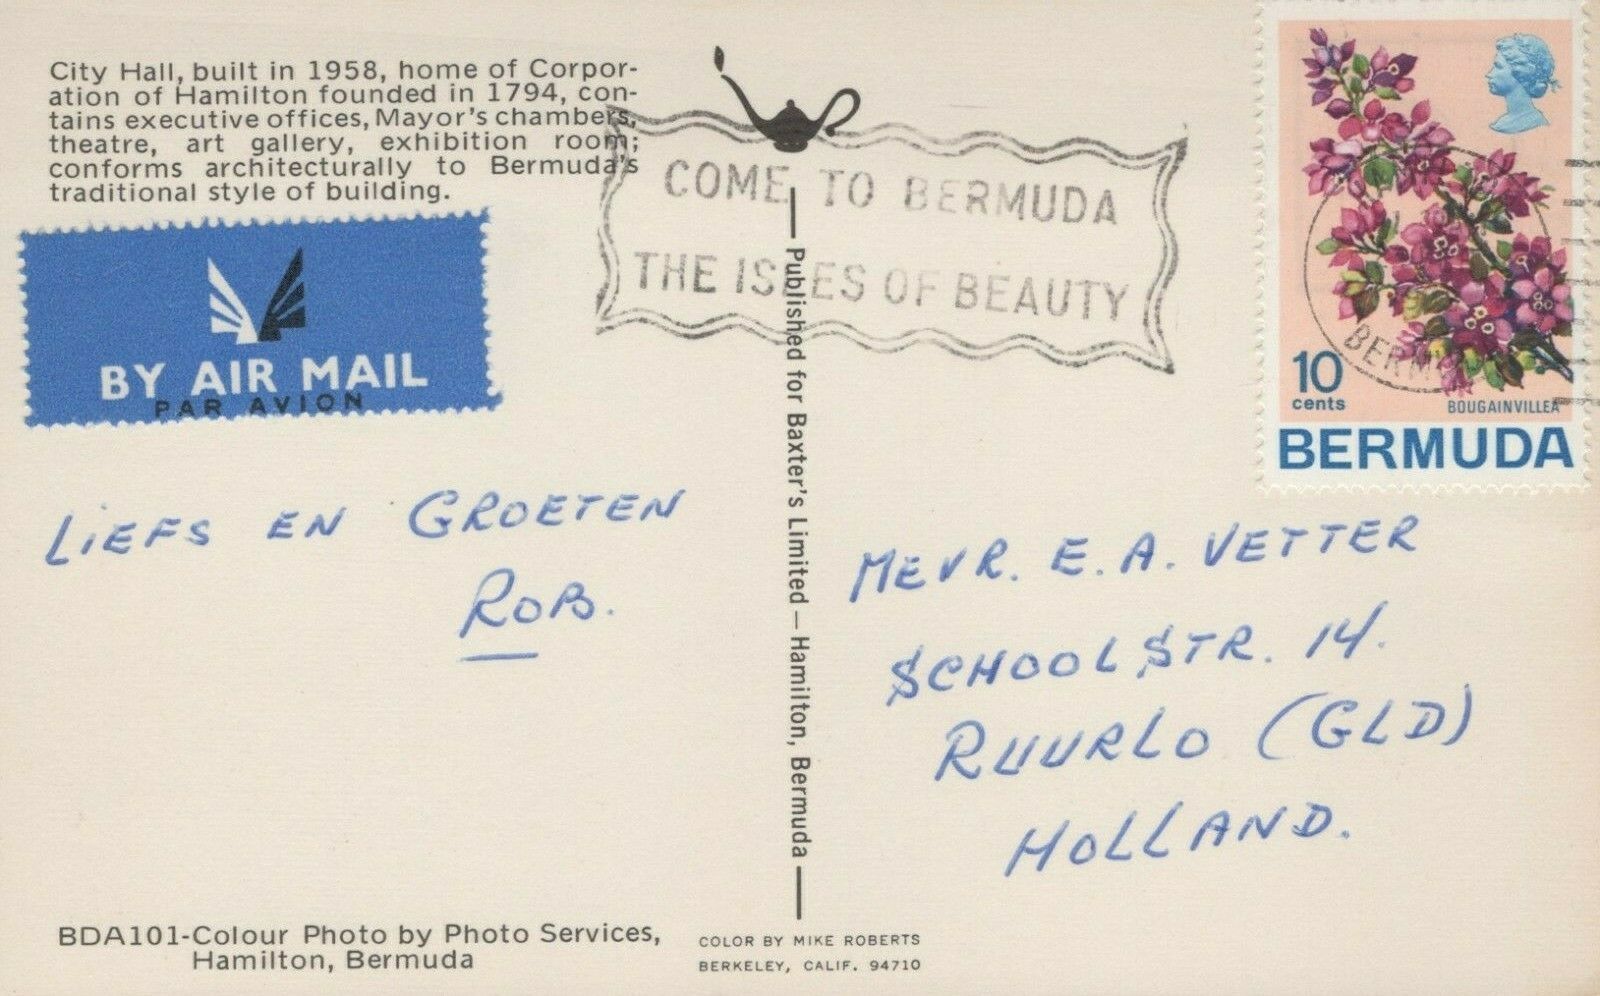 City Hall, built in 1958, home of Corpor-
ation of Hamilton founded in 1794, con-
tains executive offices, Mayor's chambers,
theatre, art gallery, exhibition room;
conforms architecturally to Bermuda's
traditional style of building.
BY AIR MAIL
PAR AVION
COME TO BERMUDA
THE ISLES OF BEAUTY
10
cents
BOUGAINVILLEA
BERMUDA
BERMUDA
LIEFS EN GROETEN
ROB.
Published for Baxter's Limited — Hamilton, Bermuda
MEVR. E. A. VETTER
SCHOOLSTR. 14.
RUURLO (GLD)
HOLLAND.
BDA101-Colour Photo by Photo Services,
Hamilton, Bermuda
COLOR BY MIKE ROBERTS
BERKELEY, CALIF. 94710